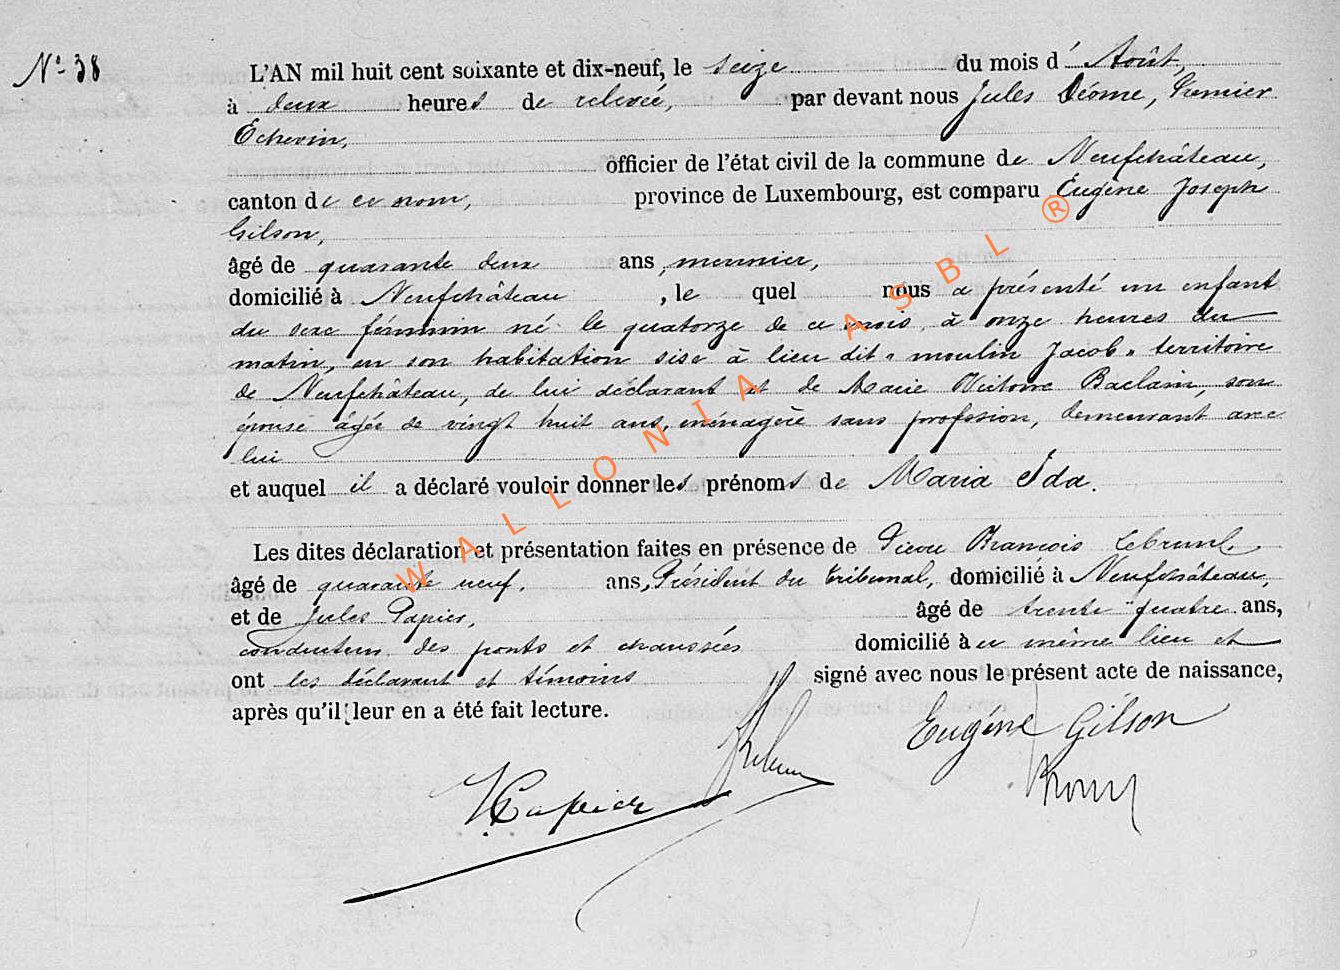 N° 38
L'AN mil huit cent soixante et dix-neuf, le seize du mois d' Août,
à deux heures de relevée, par devant nous Jules Déome, Premier
Echevin,
officier de l'état civil de la commune de Neufchâteau,
canton de ce nom, province de Luxembourg, est comparu Eugène Joseph
Gilson,
âgé de quarante deux ans, meunier,
domicilié à Neufchâteau, le quel nous a présenté un enfant
du sexe féminin né le quatorze de ce mois, à onze heures du
matin, en son habitation sise à lieu dit « moulin Jacob » territoire
de Neufchâteau, de lui déclarant et de Marie Victoire Baclain, son
épouse âgée de vingt huit ans, ménagère sans profession, demeurant avec
lui
et auquel il a déclaré vouloir donner les prénoms de Maria Ida.
Les dites déclaration et présentation faites en présence de Pierre François Lebrun
âgé de quarante neuf, ans, Président du tribunal, domicilié à Neufchâteau,
et de Jules Papier, âgé de trente quatre ans,
conducteur des ponts et chaussées domicilié à ce même lieu et
ont les déclarant et témoins signé avec nous le présent acte de naissance,
après qu'il leur en a été fait lecture.
Eugène Gilson
Papier
WALLONIA ASBL ®